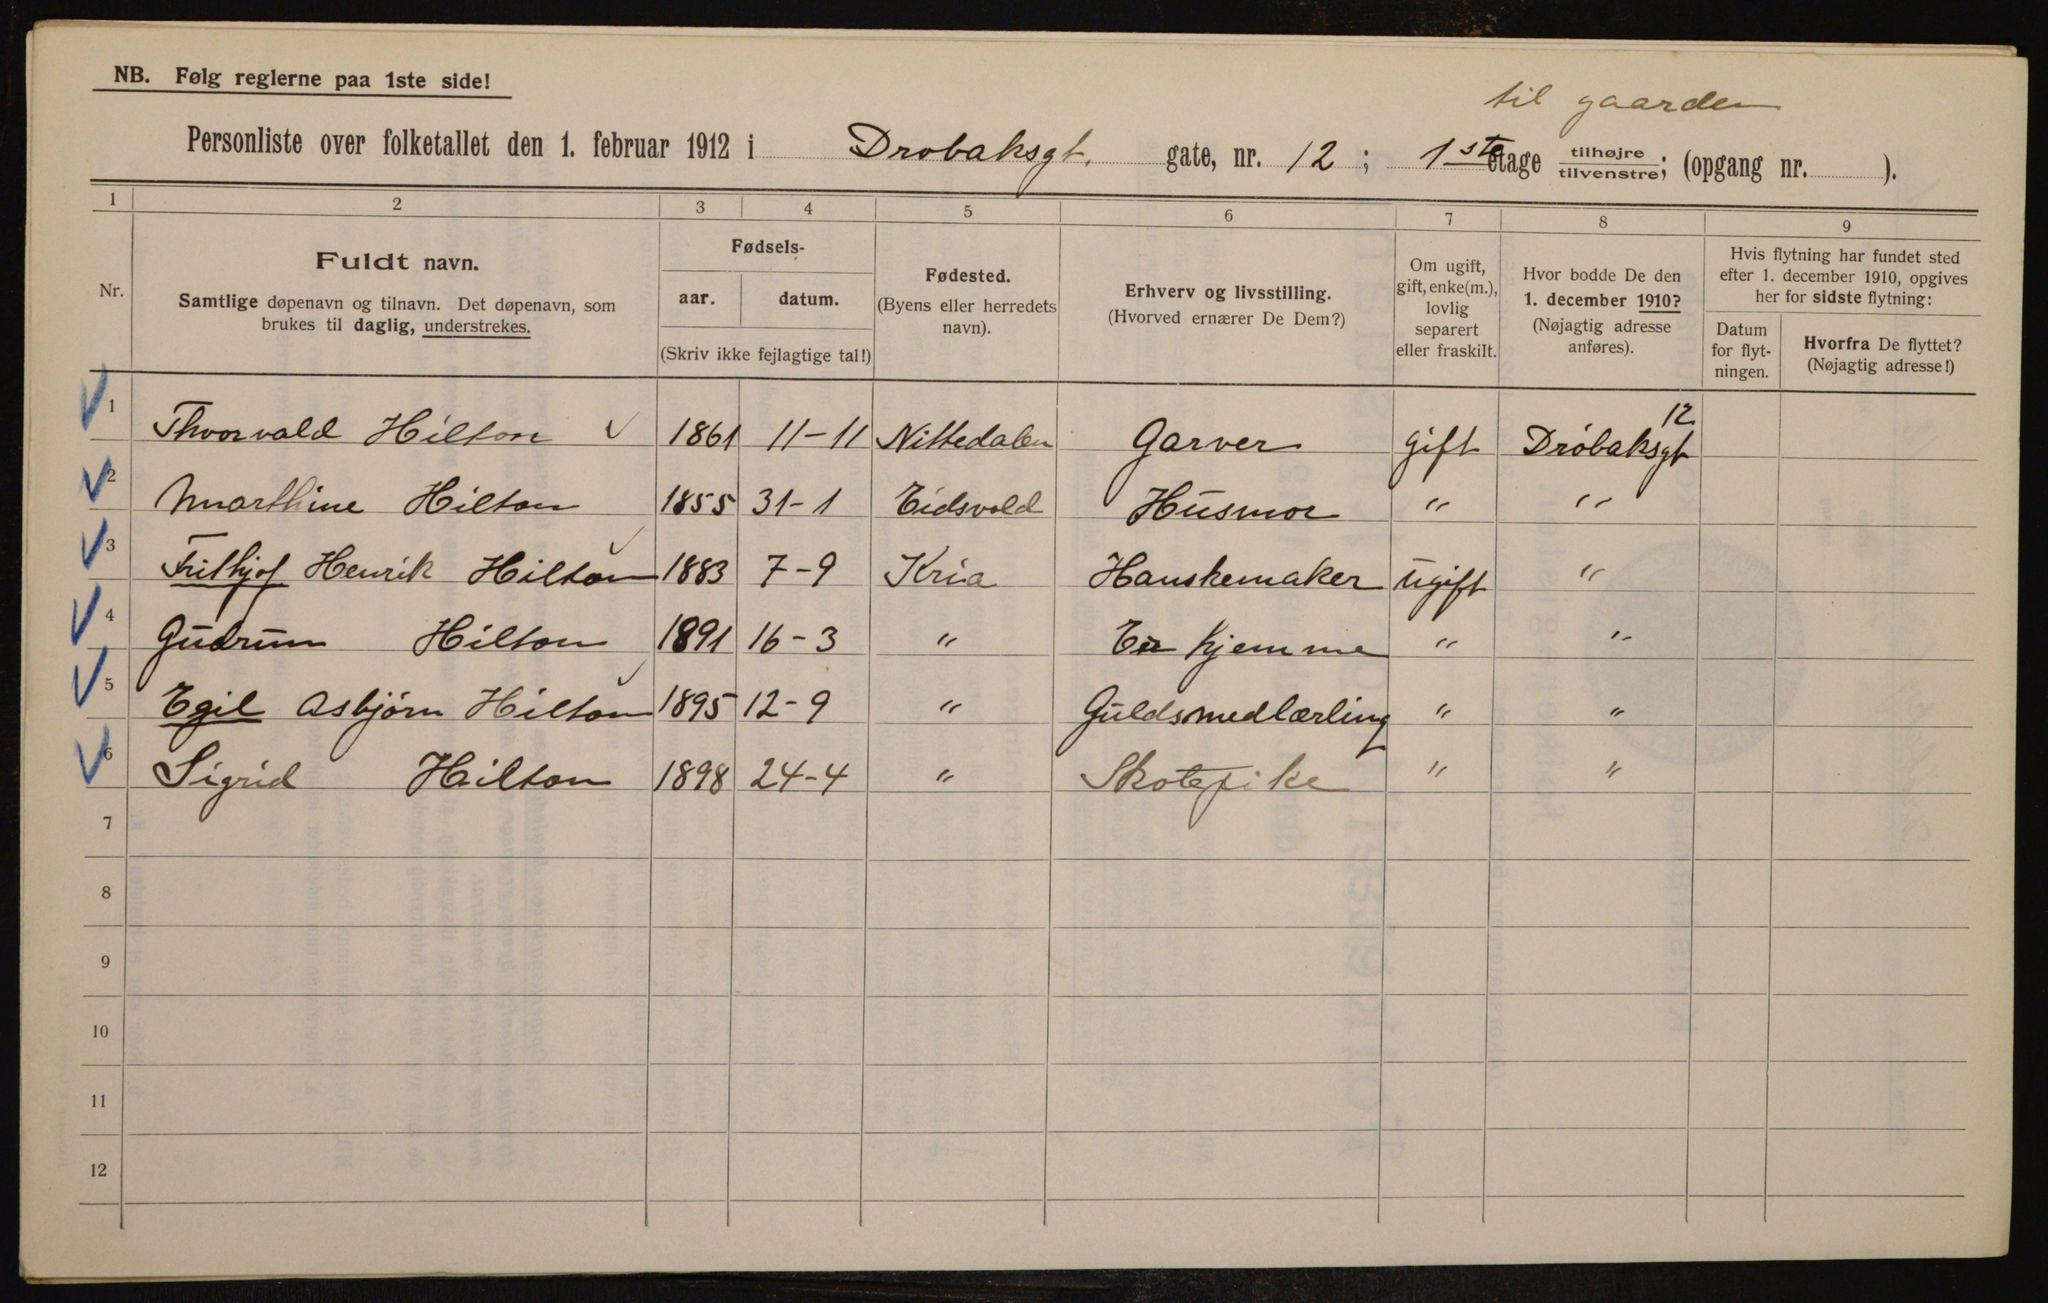 NB. Følg reglerne paa 1ste side!
til gaarden
Personliste over folketallet den 1. februar 1912 i Drøbaksgt. gate, nr. 12; 1ste etage tilhøjre tilvenstre; (opgang nr. ).
1 2 3 4 5 6 7 8 9
Nr.
Fuldt navn.
Samtlige døpenavn og tilnavn. Det døpenavn, som
brukes til daglig, understrekes.
Fødsels-
aar. datum.
(Skriv ikke fejlagtige tal!)
Fødested.
(Byens eller herredets
navn).
Erhverv og livsstilling.
(Hvorved ernærer De Dem?)
Om ugift,
gift, enke(m.),
lovlig
separert
eller fraskilt.
Hvor bodde De den
1. december 1910?
(Nøjagtig adresse
anføres).
Hvis flytning har fundet sted
efter 1. december 1910, opgives
her for sidste flytning:
Datum
for flyt-
ningen.
Hvorfra De flyttet?
(Nøjagtig adresse!)
1 Thorvald Hilton 1861 11-11 Nittedalen Garver gift Drøbaksgt 12
2 Marthine Hilton 1855 31-1 Eidsvold Husmor " "
3 Frithjof Henrik Hilton 1883 7-9 Kria Hanskemaker ugift "
4 Gudrun Hilton 1891 16-3 " Er hjemme " "
5 Egil Asbjørn Hilton 1895 12-9 " Guldsmedlærling " "
6 Sigrid Hilton 1898 24-4 " Skolepike " "
7
8
9
10
11
12